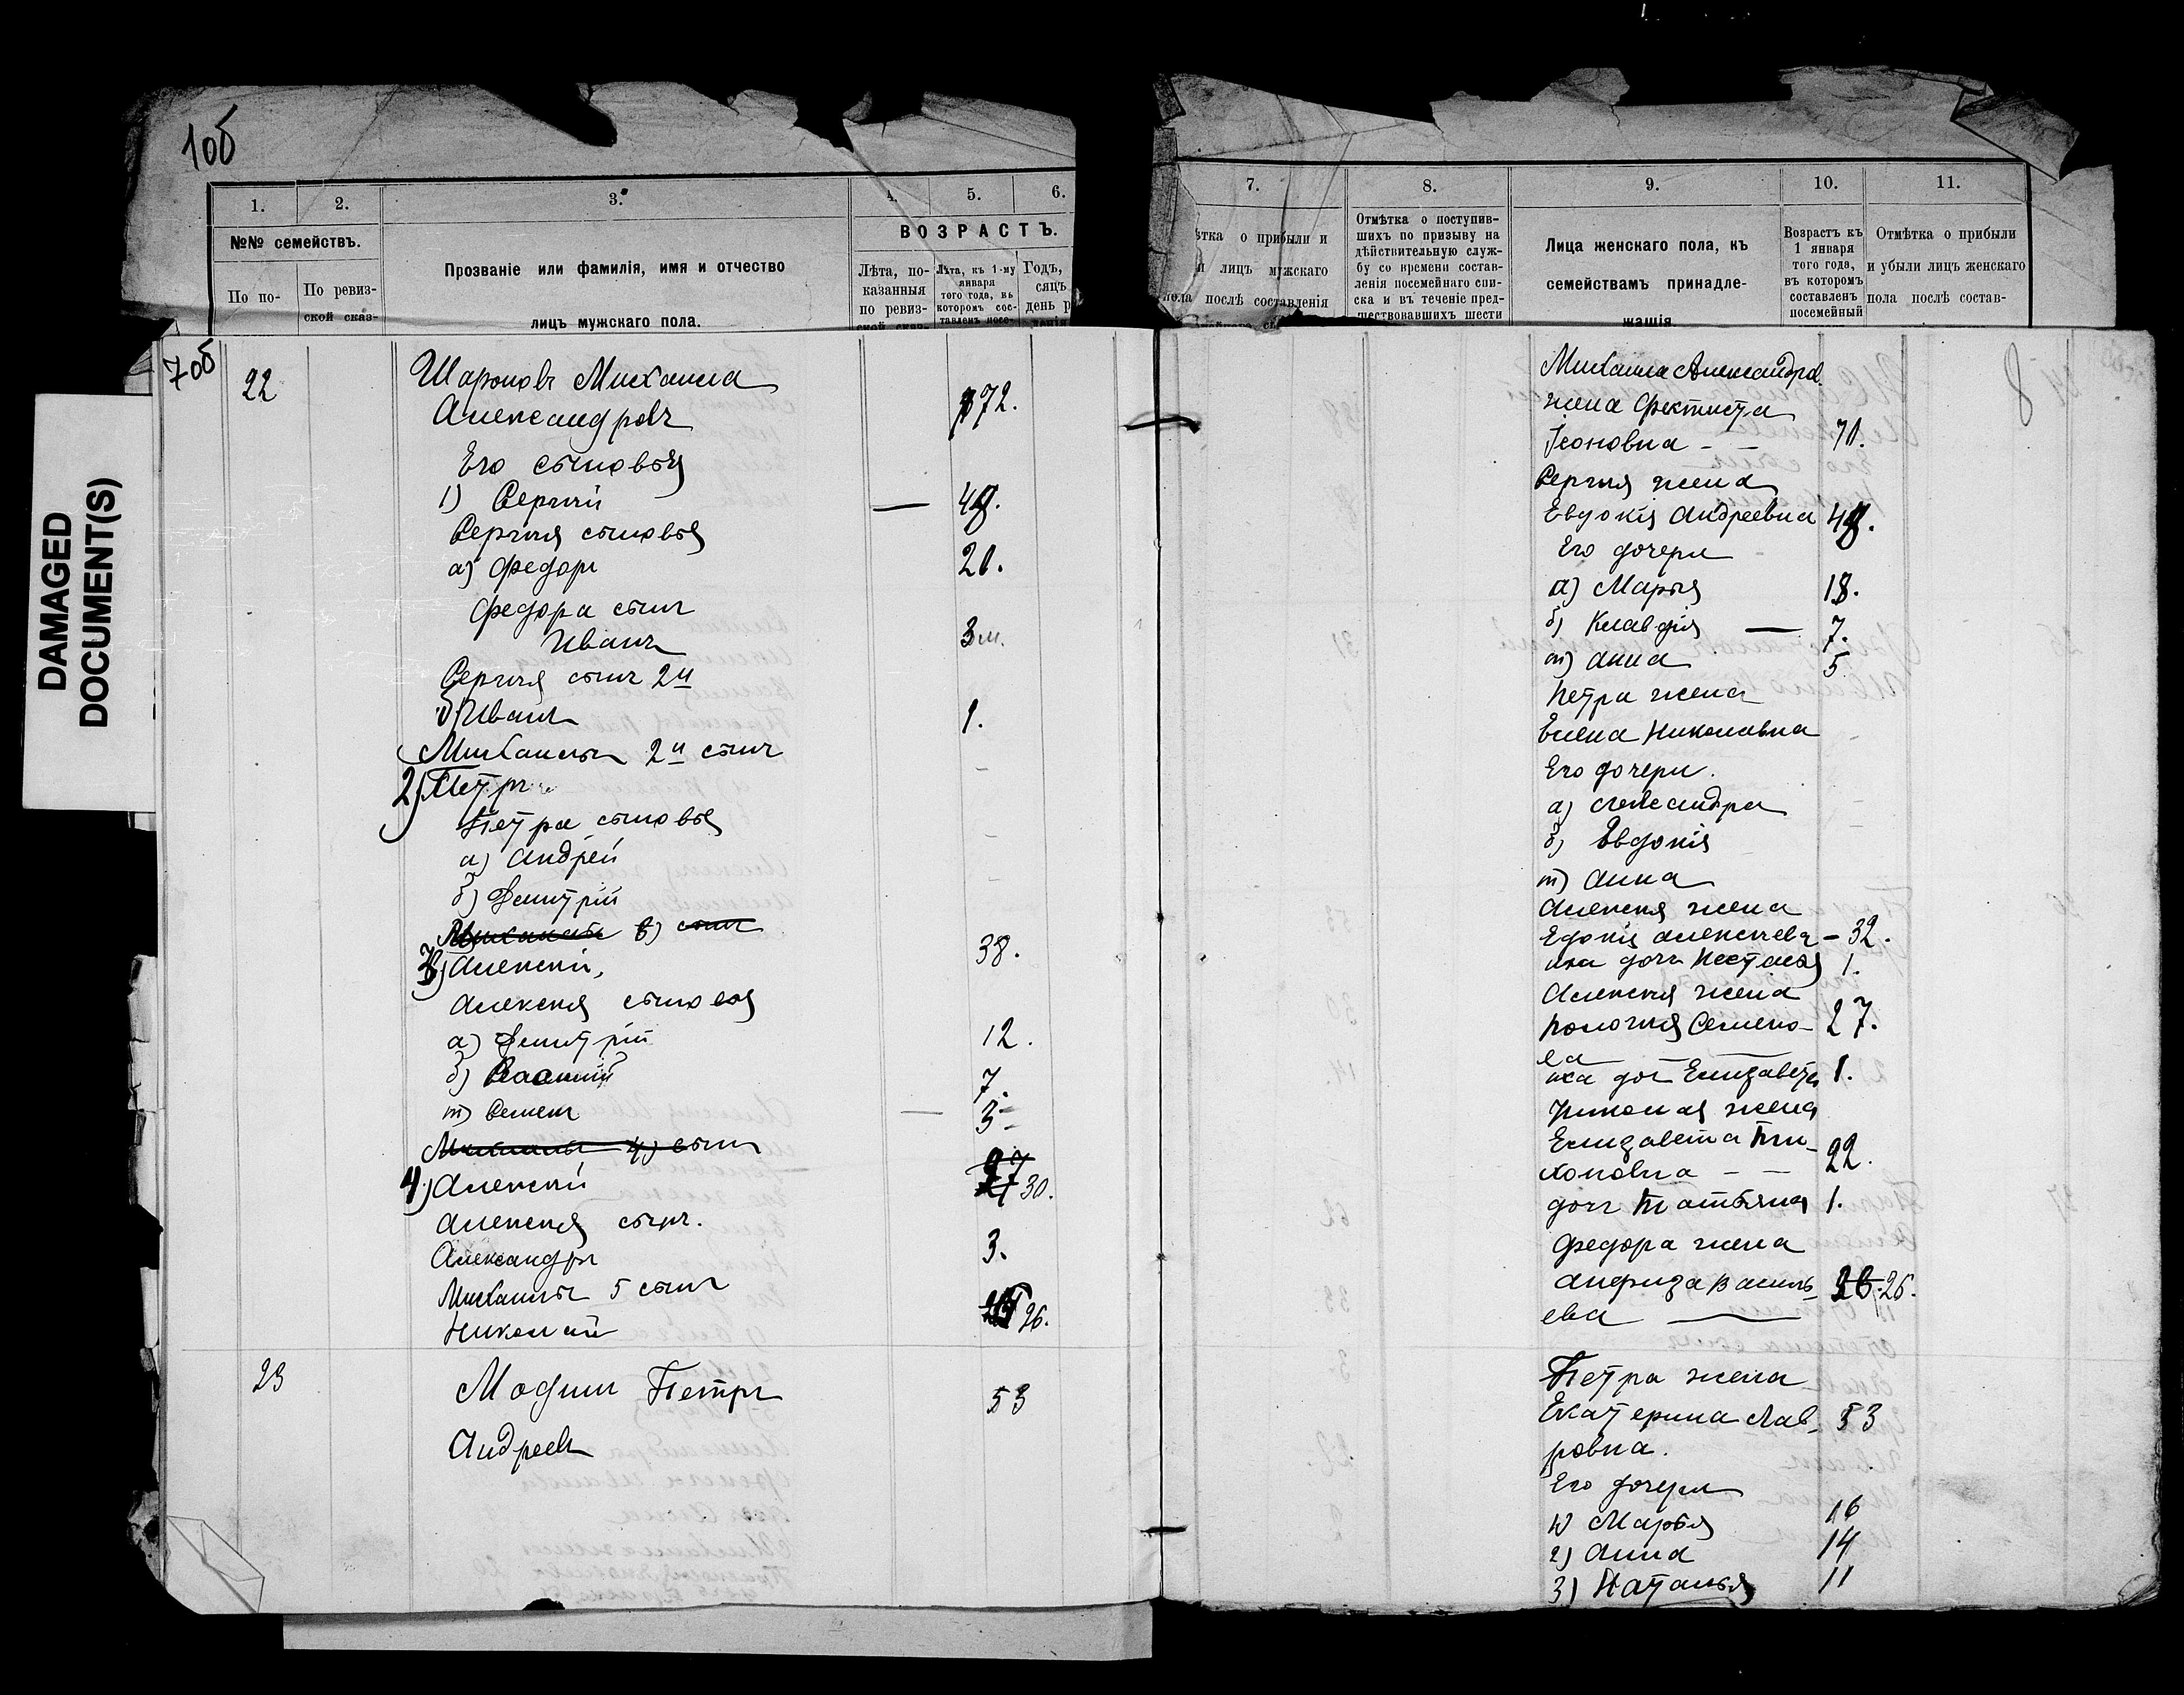 DAMAGED
DOCUMENT(S)
10б
1.
2.
3.
4.
5.
6.
№№ семействъ.
По по-
По ревиз-
ской сказ-
Прозваніе или фамилія, имя и отчество
лицъ мужскаго пола.
ВОЗРАСТЪ.
Лѣта, по-
казанныя
по ревиз-
Лѣта, къ 1-му
января
того года, въ
которомъ сос-
тавленъ посе-
Годъ,
сяцъ
день р
7об
22
Шароновъ Михаила
Александровъ
72.
Его сыновья
1) Сергѣй
Сергѣя сыновья
а) Федоръ
20.
Федора сынъ
Иванъ
3 м.
Сергѣя сынъ 2й
б) Иванъ
1.
Михаилы 2й сынъ
2) Петръ
Петра сыновья
а) Андрей
б) Дмитрій
в) сынъ
3) Алексѣй
38.
Алексѣя сыновья
а) Дмитрій
12.
б) Василій
7.
т) Семенъ
3
Михаилы 4) сынъ
4) Алексѣй
27 30.
Алексѣя сынъ.
Александръ
3.
Михаилы 5 сынъ
Николай
26.
23
Модинъ Петръ
53
Андреевъ
7.
8.
9.
10.
11.
ѣтка о прибыли и
и лицъ мужскаго
пола послѣ составленія
Отмѣтка о поступив-
шихъ по призыву на
дѣйствительную служ-
бу со времени состав-
ленія посемейнаго спи-
ска и въ теченіе пред-
шествовавшихъ шести
Лица женскаго пола, къ
семействамъ принадле-
жащія
Возрастъ къ
1 января
того года,
въ которомъ
составленъ
посемейный
Отмѣтка о прибыли
и убыли лицъ женскаго
пола послѣ состав-
8
Михаила Александров.
жена Фектиста
70.
Сергѣя жена
Евдокія Андреевна
Его дочери
а) Марья 18.
б) Клавдія — 7.
т) Анна 5
Петра жена
Елена Николавна
Его дочери.
а) Александра
б) Евдокія
т) Анна
Алексѣя жена
Едокія Алексѣева – 32.
1.
Алексѣя жена
Семено- 27.
ва
дочь Елизавета 1.
Николая жена
Елизавета Ти-
хоновна – – 22.
дочь Татьяна 1.
Федора жена
Василь-
ева 26.
Петра жена
Екатерина Лав- 53
ровна.
Его дочери
1) Марья 16
2) Анна 14
3) Наталья 11